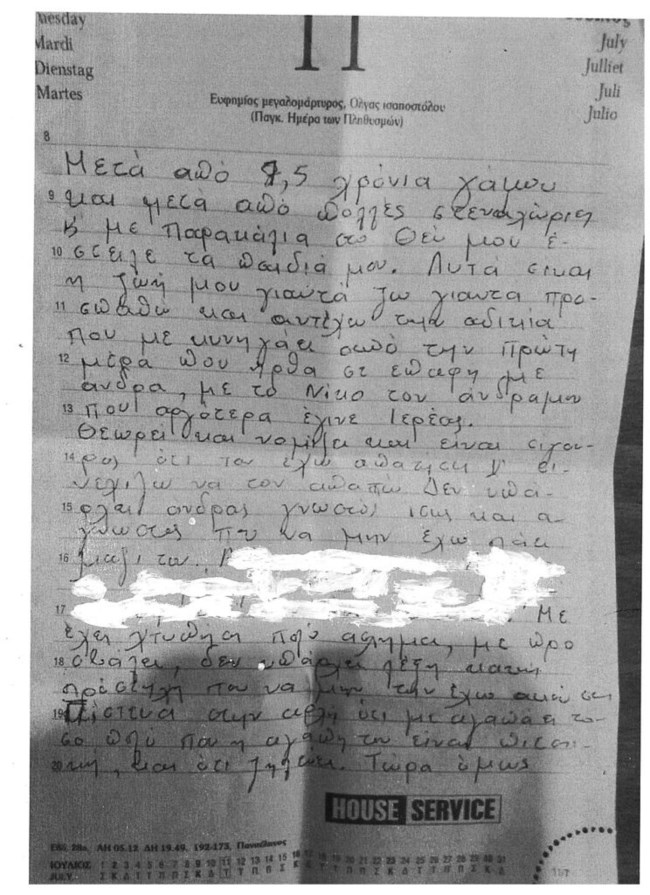 Mardi
Dienstag
Martes
11
July
Julliet
Juli
Julio
Ευφημίας μεγαλομάρτυρος, Όλγας ισαποστόλου
(Παγκ. Ημέρα των Πληθυσμών)
8
Μετά από 9,5 χρόνια γάμου
9 και μετά από πολλές στεναχώριες
κ' με παρακάλια στο Θεύ μου έ-
10 στειλε τα παιδιά μου. Αυτά είναι
η ζωή μου γιαυτά ζω γιαυτα προ-
11 σπαθώ και αντέχω την αδικία
που με κυνηγάει από την πρώτη
12 μέρα που ήρθα σε επαφή με
άνδρα, με το Νίκο τον άνδραμου
13 που αργότερα έγινε Ιερέας.
Θεωρεί και νομίζει και είναι σιγου-
14 ρος ότι τον έχω απατήσει κ' συ-
νεχίζω να τον απατώ Δεν υπά-
15 ρχει άνδρας γνωστός ίσως και α-
γνωστος που να μην έχω πάει
16 μαζί του.
17 Με
έχει χτυπήσει πολύ άσχημα, με προ
18 σβάλει, δεν υπάρχει λέξη κακή
πρόστυχη που να μην την έχω ακούσει
19 Πίστευα στην αρχή ότι με αγαπάει το-
σο πολύ που η αγάπη του είναι
20 και ότι ζηλεύει. Τώρα όμως
HOUSE SERVICE
ΕΒΔ. 28η, ΑΗ 05.12 ΔΗ 19.49, 192-173, Πανσέληνος
ΙΟΥΛΙΟΣ 1 2 3 4 5 6 7 8 9 10 11 12 13 14 15 16 17 18 19 20 21 22 23 24 25 26 27 28 29 30 31
JULY